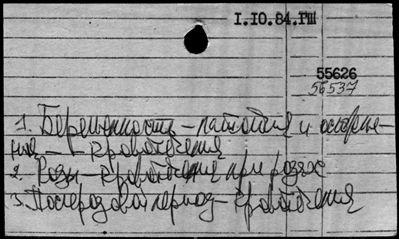 1.10.84.ГШ
55626
56537
1. Беременность – патология и осложне-
ния – кровотечения
2. Роды – кровотечения при родах
3. Послеродовой период – кровотечения